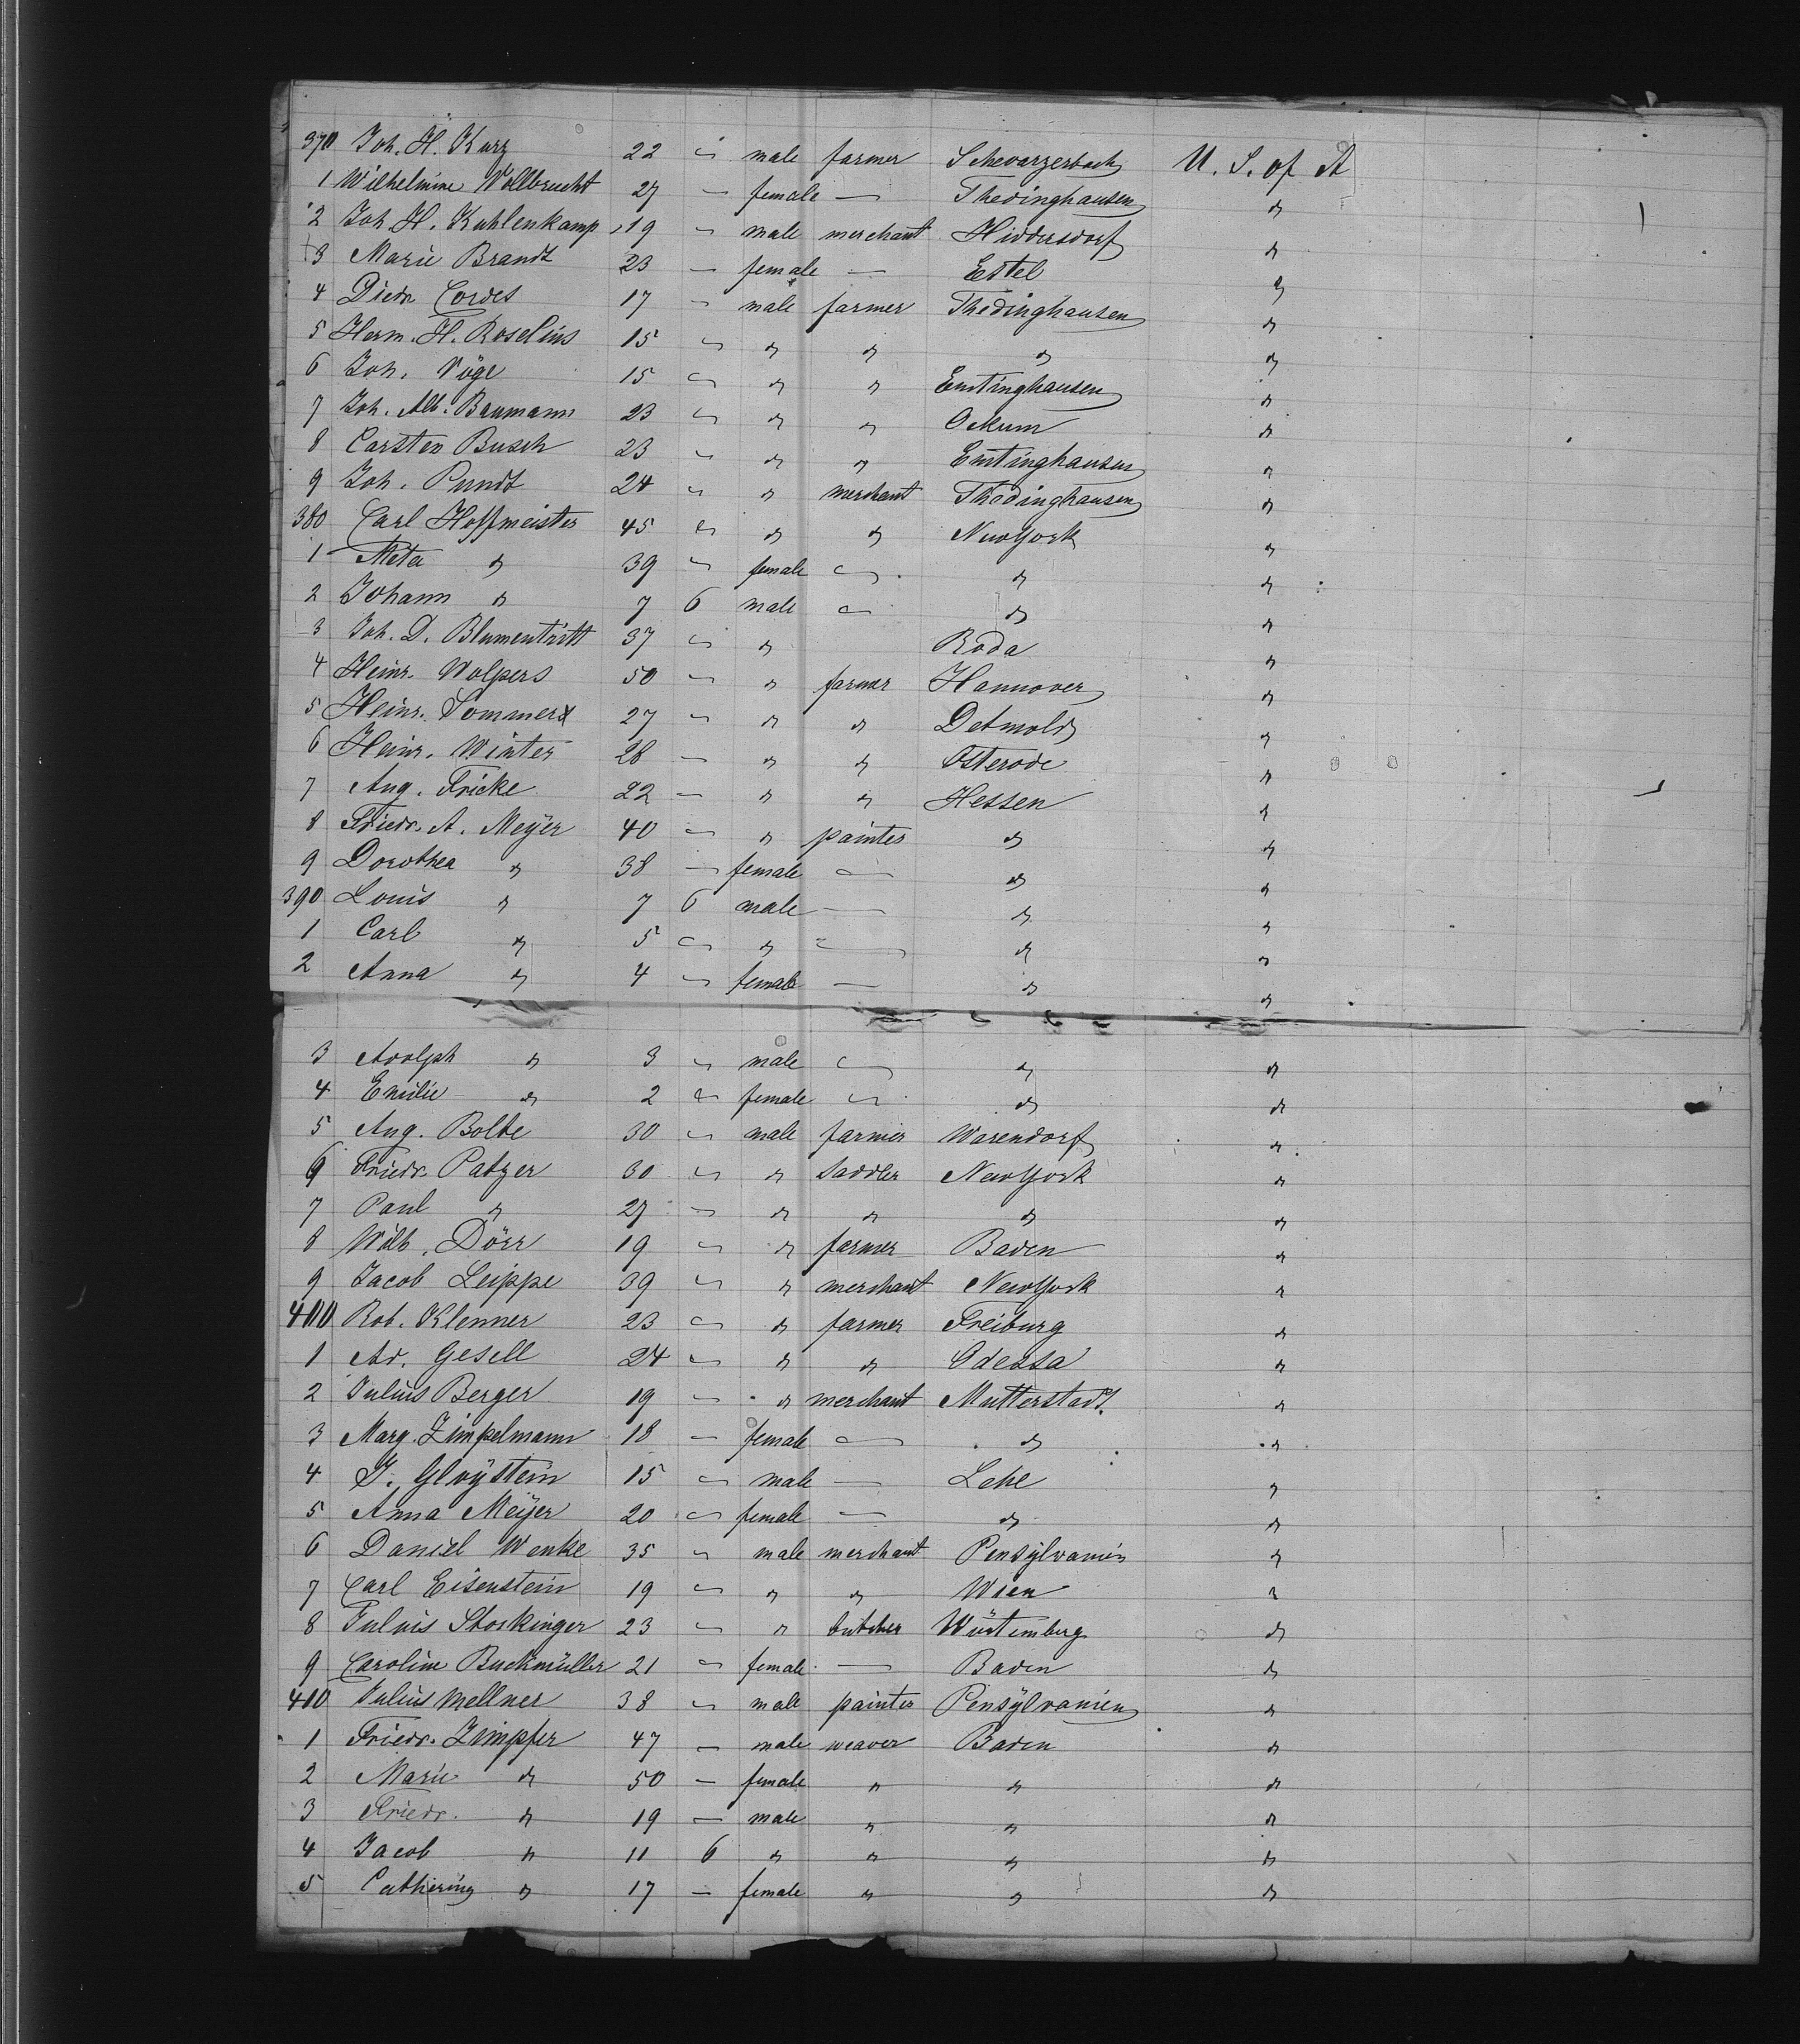 370 Joh. H. Kurz 22 - male farmer Schwarzerbach U. S. of A
1 Wilhelmine Vollbrecht 27 - female - Thedinghausen "
2 Joh. H. Kuhlenkamp 19 - male merchant Hiddersdorf "
3 Marie Brandt 23 - female - Estel "
4 Diedr. Cordes 17 - male farmer Thedinghausen "
5 Herm. H. Roselius 15 - " " " "
6 Joh. Vöge 15 - " " Emtinghausen "
7 Joh. Alb. Baumann 23 - " " Ockum "
8 Carsten Busch 23 - " " Emtinghausen "
9 Joh. Pundt 24 - " merchant Thedinghausen "
380 Carl Hoffmeister 45 - " " NewYork "
1 Meta " 39 - female - " "
2 Johann " 7 6 male - " "
3 Joh. D. Blumentritt 37 - " Roda "
4 Heinr. Wolpers 50 - " farmer Hannover "
5 Heinr. Sommer 27 - " " Detmold "
6 Heinr. Winter 28 - " " Osterode "
7 Aug. Fricke 22 - " " Hessen "
8 Friedr. A. Meÿer 40 - " painter " "
9 Dorothea " 38 - female - " "
390 Louis " 7 6 male - " "
1 Carl " 5 - " - " "
2 Anna " 4 - female - " "
3 Adolph " 3 - male - " "
4 Emilie " 2 - female - " "
5 Aug. Bolte 30 - male farmer Warendorf "
6 Friedr. Patzer 30 - " saddler NewYork "
7 Paul " 27 - " " " "
8 Wilh. Dörr 19 - " farmer Baden "
9 Jacob Leippe 39 - " merchant NewYork "
400 Rob. Klenner 23 - " farmer Freiburg "
1 Ad. Gesell 24 - " " Odessa "
2 Julius Berger 19 - " merchant Mutterstadt "
3 Marg. Zimpelmann 18 - female - " "
4 J. Gloÿstein 15 - male - Lehe "
5 Anna Meÿer 20 - female - " "
6 Daniel Wenke 35 - male merchant Pensÿlvanien "
7 Carl Eisenstein 19 - " " Wien "
8 Julius Stockinger 23 - " butcher Würtemberg "
9 Caroline Buckmüller 21 - female - Baden "
410 Julius Mellner 38 - male painter Pensÿlvanien "
1 Friedr. Zimpfer 47 - male weaver Baden "
2 Marie " 50 - female " " "
3 Friedr. " 19 - male " " "
4 Jacob " 11 6 " " " "
5 Catherine " 17 - female " " "